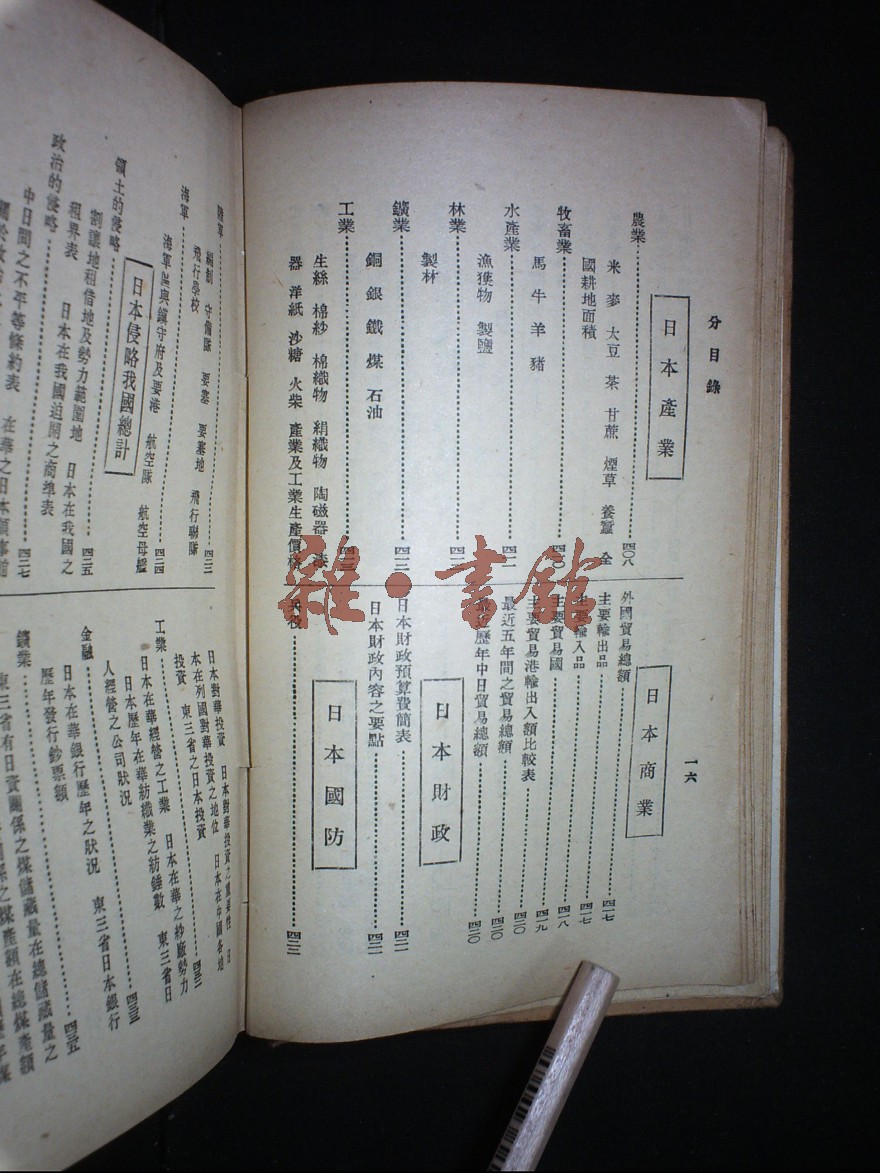 分目錄
一六
日本產業
農業 四〇八
米 麥 大豆 茶 甘蔗 煙草 養蠶 全
國耕地面積
牧畜業 四一〇
馬 牛 羊 豬
水產業 四一一
漁獲物 製鹽
林業
製材
鑛業
銅 銀 鐵 煤 石油
工業
生絲 棉紗 棉織物 絹織物 陶磁器 漆
器 洋紙 沙糖 火柴 產業及工業生產價格
日本商業
外國貿易總額 四一七
主要輸出品 四一七
主要輸入品 四一八
主要貿易國 四一九
主要貿易港輸出入額比較表 四二〇
最近五年間之貿易總額 四二〇
最近歷年中日貿易總額 四二〇
日本財政
日本財政預算費簡表 四二一
日本財政內容之要點 四二一
日本國防
兵役 四二三
陸軍 四二三
編制 守備隊 要塞 要塞地 飛行聯隊
飛行學校
海軍 四二四
海軍區與鎭守府及要港 航空隊 航空母艦
日本侵略我國總計
領土的侵略 四二五
割讓地租借地及勢力範圍地 日本在我國之
租界表 日本在我國迫開之商埠表
政治的侵略 四二七
中日間之不平等條約表 在華之日本領事館
日本對華投資 日本對華投資之重要性 日
本在列國對華投資之地位 日本在中國各地
投資 東三省之日本投資
工業
日本在華經營之工業 日本在華之紗廠勢力
日本歷年在華紡織業之紡錘數 東三省日
人經營之公司狀況
金融 四三五
日本在華銀行歷年之狀況 東三省日本銀行
歷年發行鈔票額
鑛業
東三省有日資關係之煤儲藏量在總儲藏量之
雜·書館